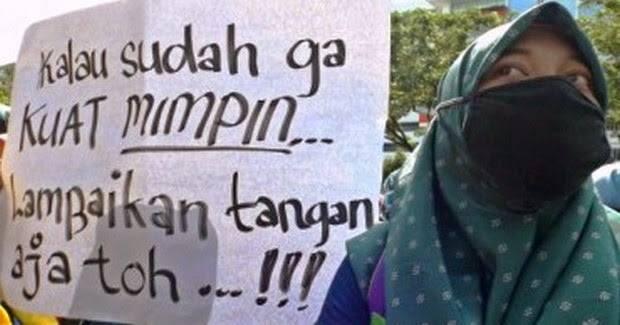 Kalau sudah ga
KUAT MIMPIN...
Lambaikan tangan
aja toh ... !!!